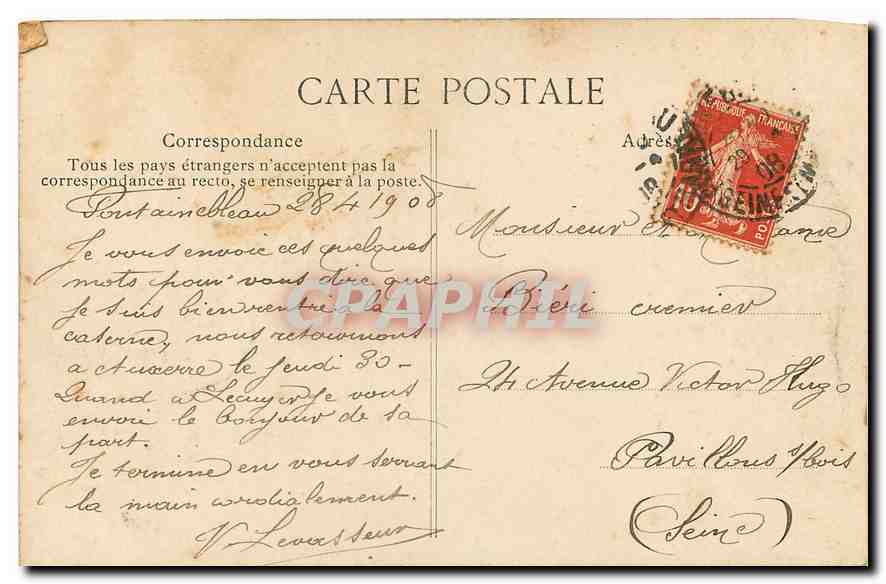 CARTE POSTALE
Correspondance
Tous les pays étrangers n'acceptent pas la
correspondance au recto, se renseigner à la poste.
Fontainebleau 28 4 1908
Je vous envoie ces quelques
mots pour vous dire que
je suis bien rentré à la
caserne, nous retournons
a Auxerre le Jeudi 30 -
Quand a Lecuyer je vous
envoi le bonjour de sa
part.
Je termine en vous serrant
la main cordialement.
V. Levasseur
Adres
REPUBLIQUE FRANÇAISE
10
PO
Monsieur et Madame
Biéri cremier
24 Avenue Victor Hugo
Pavillons s/bois
(Seine)
CPAPHIL